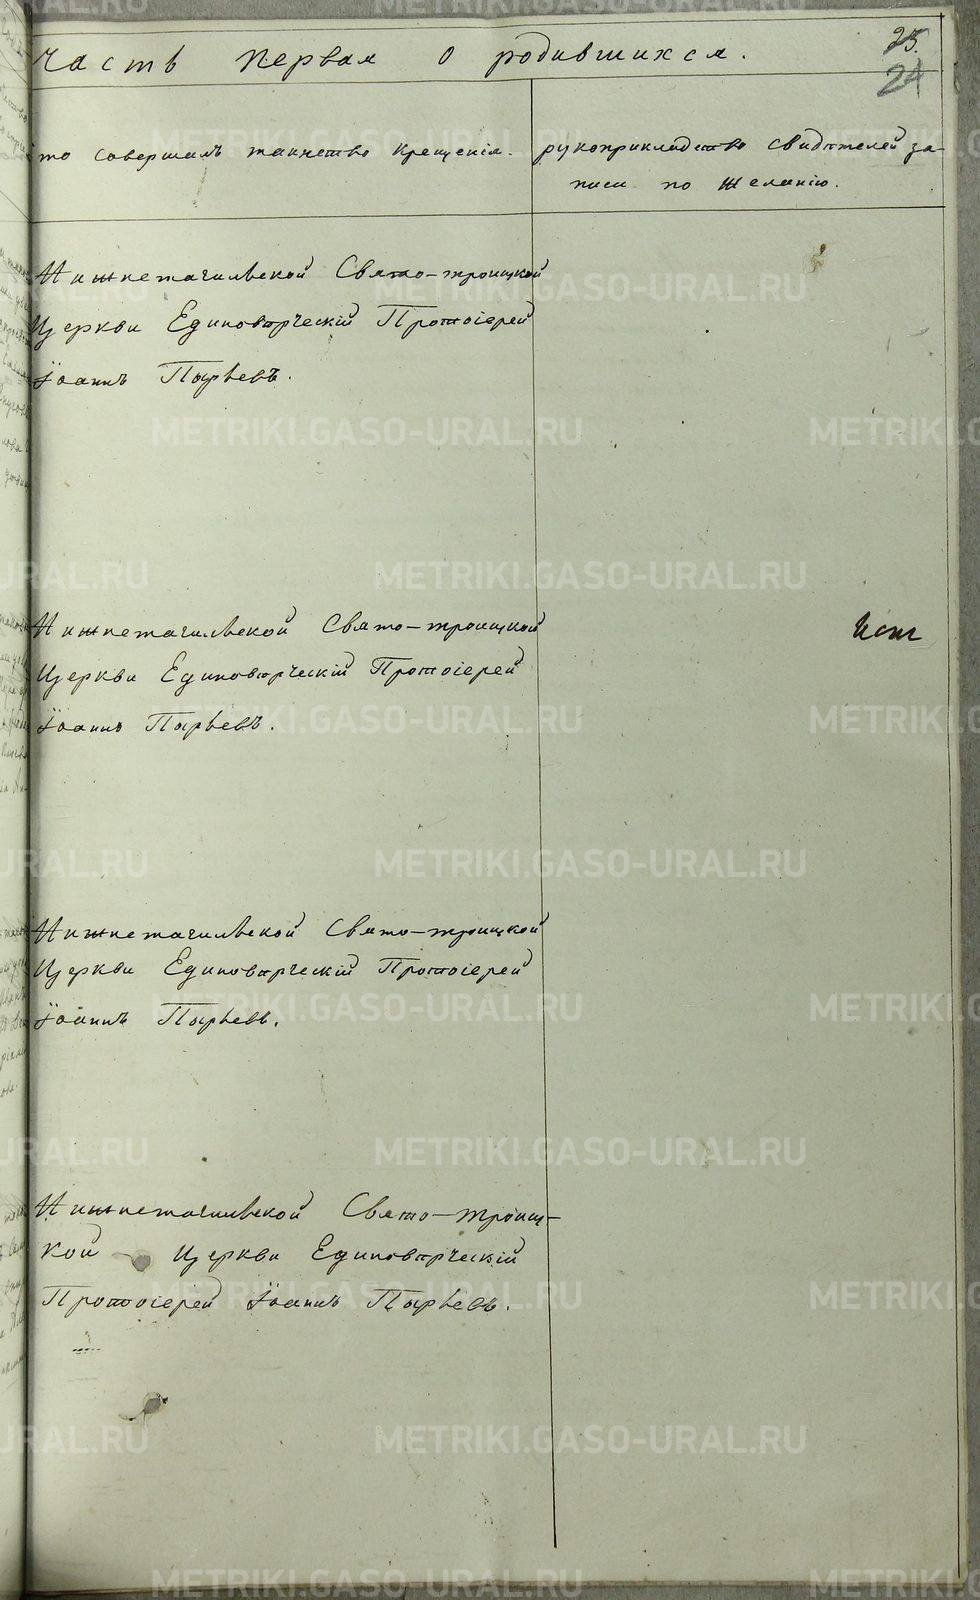 25.
24
Часть первая о родившихся.
то совершалъ таинство крещенія.
рукоприкладство свидѣтелей за-
писи по желанію.
Нижнетагильской Свято-троицкой
Церкви Единовѣрческій Протоіерей
Іоаннъ Пырьевъ.
Нижнетагильской Свято-троицкой
Церкви Единовѣрческій Протоіерей
Іоаннъ Пырьевъ.
Нижнетагильской Свято-троицкой
Церкви Единовѣрческій Протоіерей
Іоаннъ Пырьевъ.
Нижнетагильской Свято-троиц-
кой Церкви Единовѣрческій
Протоіерей Іоаннъ Пырьевъ.
METRIKI.GASO-URAL.RU